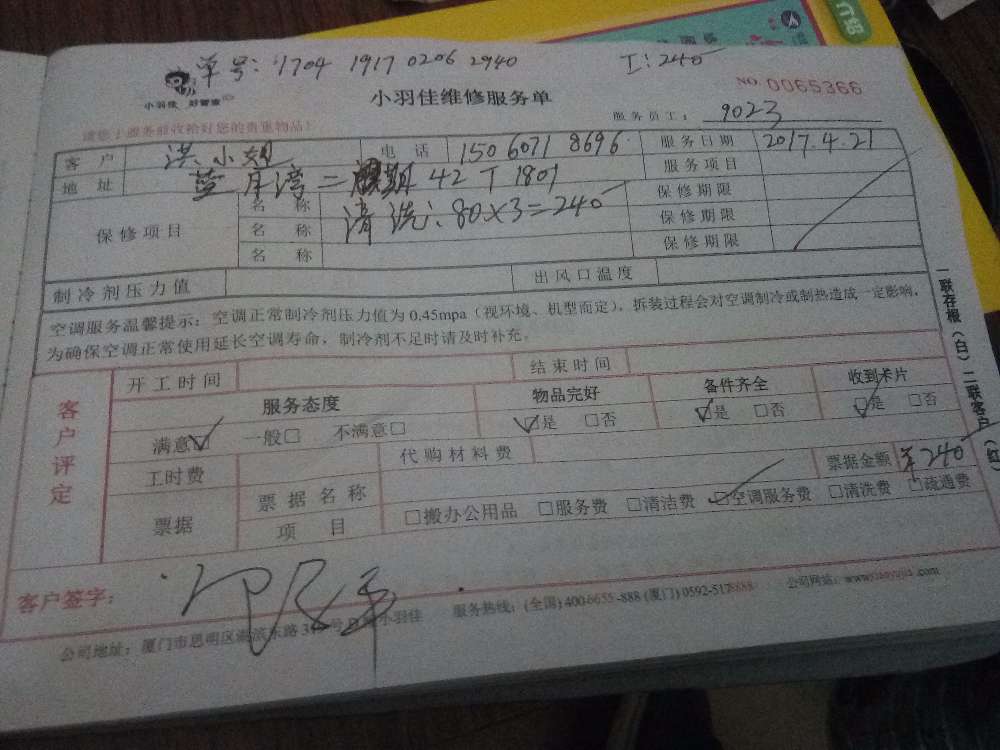 单号: 1704 1917 0206 2940 I: 240
小羽佳 好管家
小羽佳维修服务单 NO. 0065366
服务员工: 9023
客户 洪小姐 电话 150 6071 8696 服务日期 2017.4.21
地址 蓝月湾二期 42 T 1801 服务项目
保修项目 名称 清洗: 80×3=240 保修期限
名称 保修期限
名称 保修期限
制冷剂压力值 出风口温度
空调服务温馨提示: 空调正常制冷剂压力值为 0.45mpa（视环境、机型而定），拆装过程会对空调制冷或制热造成一定影响，
为确保空调正常使用延长空调寿命，制冷剂不足时请及时补充。
一联存根（白）二联客户（红）
客户评定
开工时间 结束时间
服务态度 物品完好 备件齐全 收到卡片
满意☑ 一般□ 不满意□ ☑是 □否 ☑是 □否 ☑是 □否
工时费 代购材料费 票据金额 ¥240
票据 票据名称
项目 □搬办公用品 □服务费 □清洁费 ☑空调服务费 □清洗费 □疏通费
客户签字:
公司地址: 厦门市思明区湖滨东路 小羽佳 服务热线: (全国) 400-6655-888 (厦门) 0592-5178888 公司网站: www.xiaoyujia.com